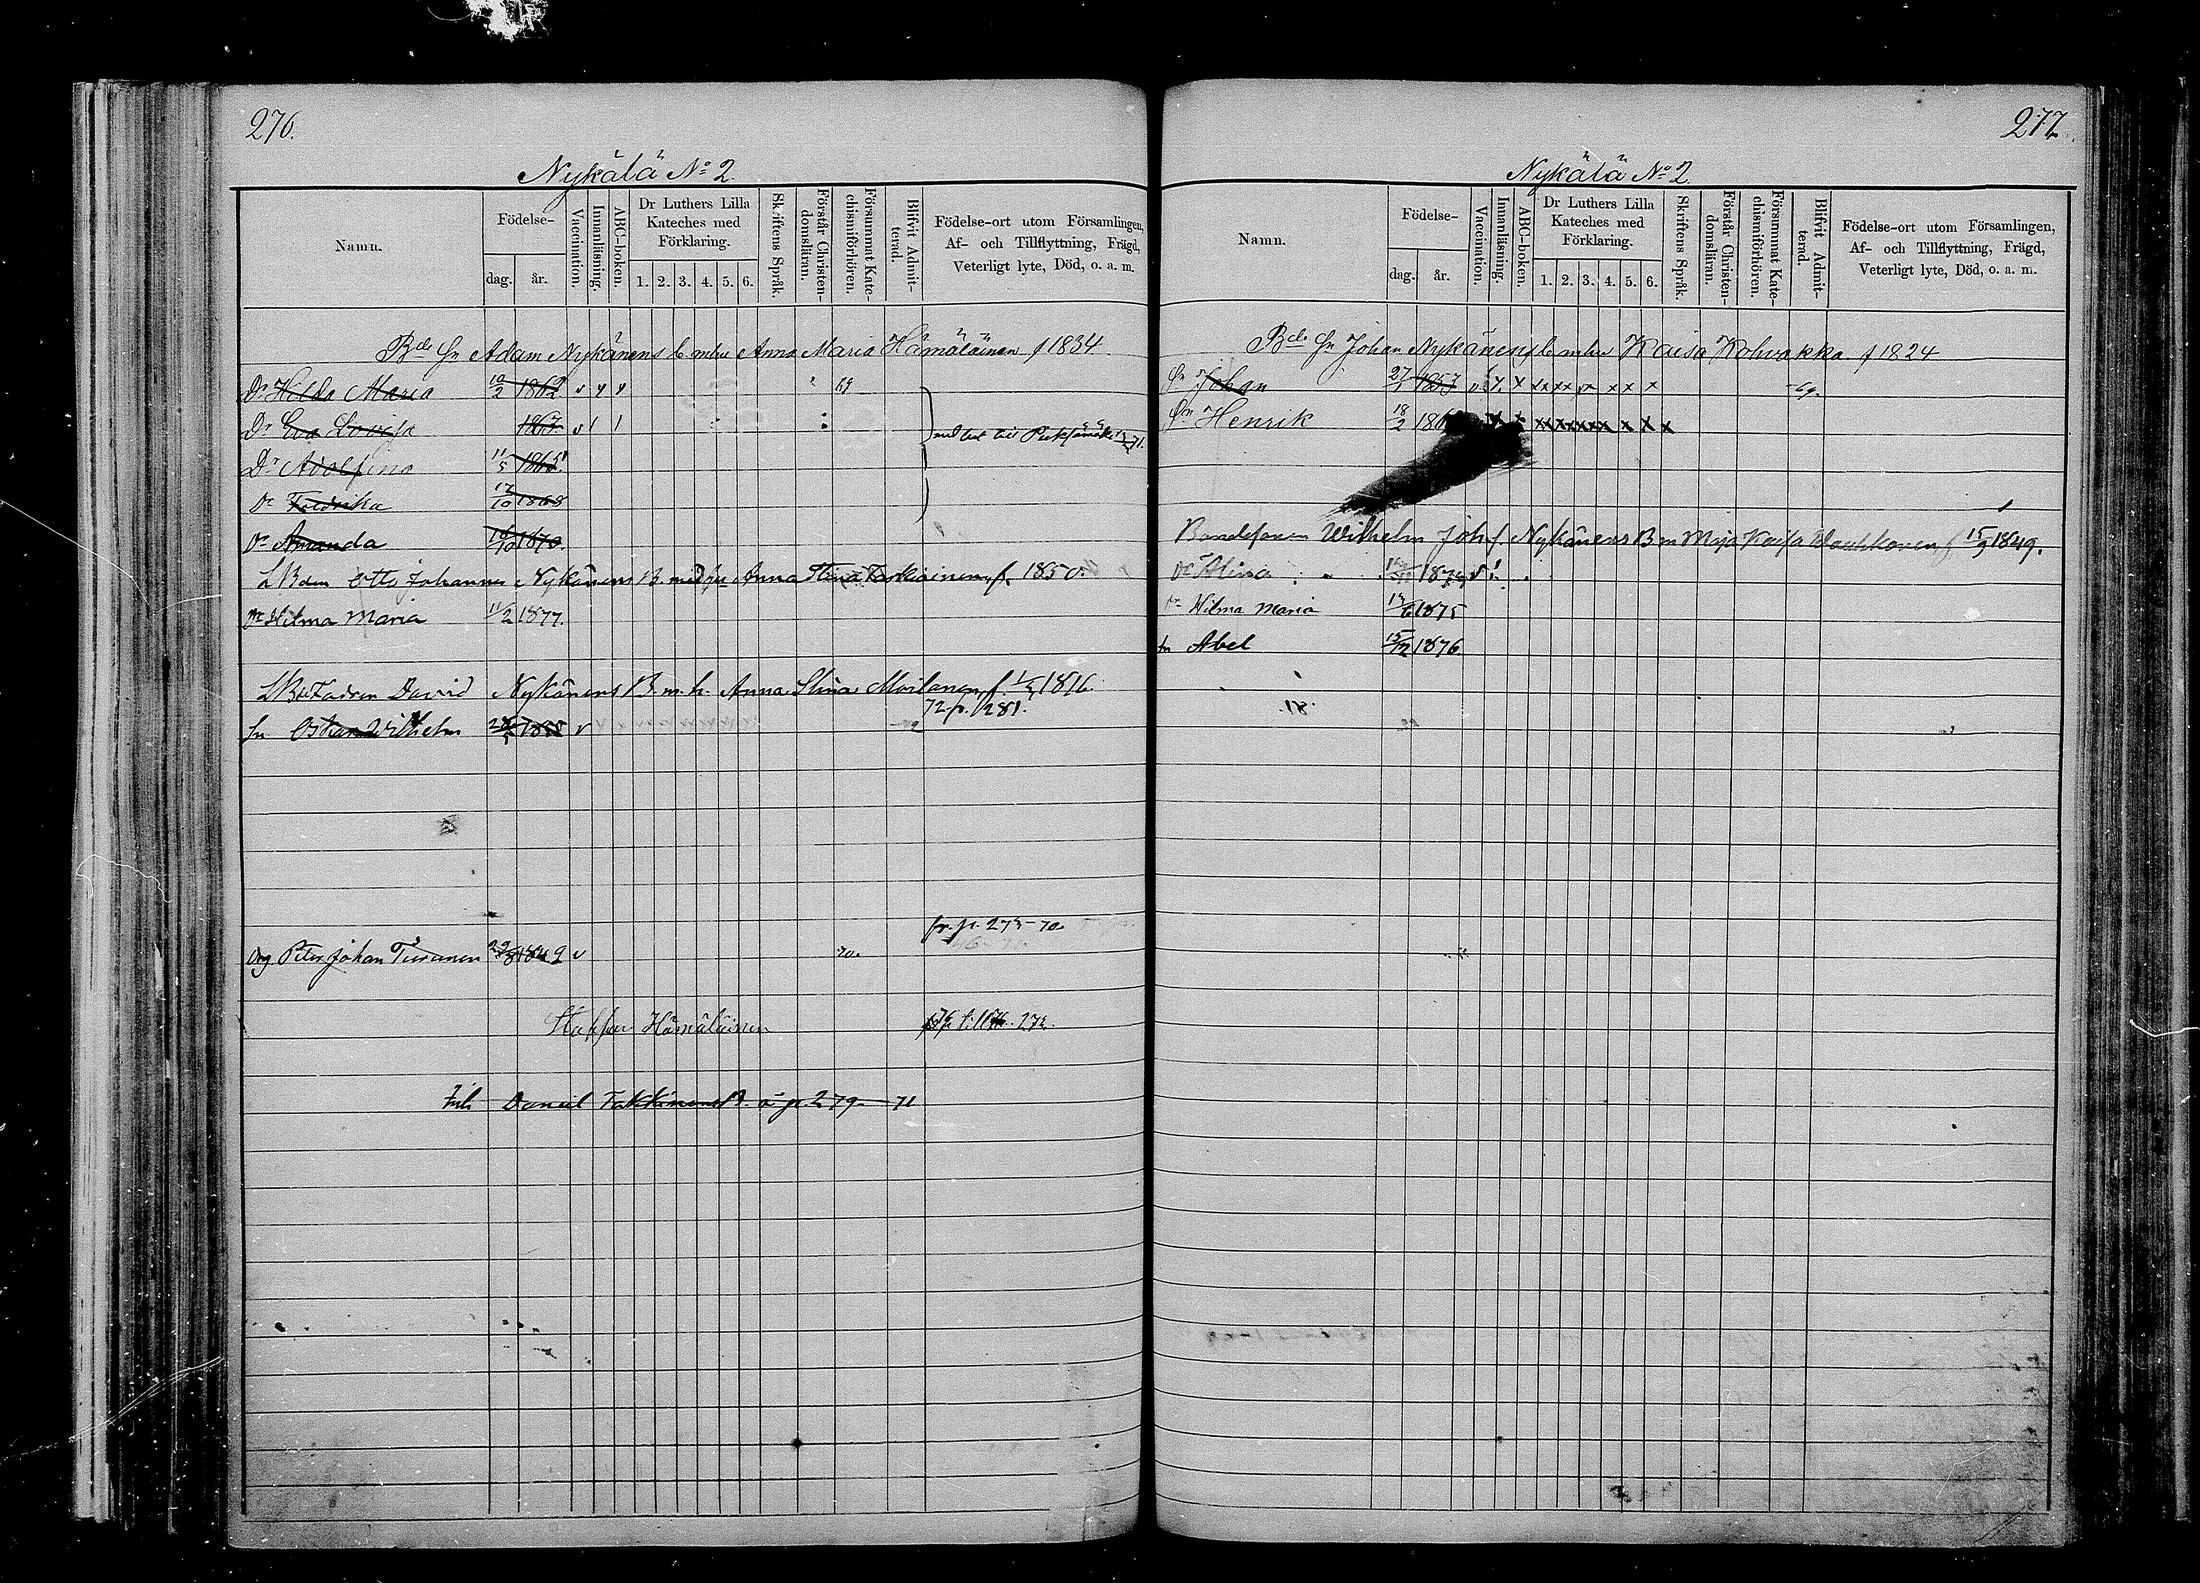 276.
Nykälä No 2.
Namn.
Födelse-
dag. år.
Vaccination.
Innanläsning.
ABC-boken.
Dr Luthers Lilla Kateches med Förklaring.
1. 2. 3. 4. 5. 6.
Skriftens Språk.
Förstår Christendomsläran.
Försummat Katechismiförhören.
Blifvit Admitterad.
Födelse-ort utom Församlingen,
Af- och Tillflyttning, Frägd,
Veterligt lyte, Död, o. a. m.
Bde Sn Adam Nykänens b mhu Anna Maria Hämäläinen f 1834.
Dr Hilda Maria 10/2 1862 v 69
Dr Eva Lovisa 1863 v
Dr Adolfina 11/5 1865
Dr Fredrika 17/10 1868
Dr Amanda 16/10 1870.
LBden Otto Johannes Nykänens B. med hu Anna Stina Tarkiainen, f. 1850.
Dr Hilma Maria 11/2 1877.
David Nykänens B m. h. Anna Stina Moilanen, f. 1816.
72 p. 281.
Sn Oskar Wilhelm 1858 v
fr. p. 275-70
Drg Peter Johan Turunen 22/8 1849 v 70.
Hämäläinen 272.
Inh Daniel Takkinens B. å p. 279-71
277.
Nykälä No 2.
Namn.
Födelse-
dag. år.
Vaccination.
Innanläsning.
ABC-boken.
Dr Luthers Lilla Kateches med Förklaring.
1. 2. 3. 4. 5. 6.
Skriftens Språk.
Förstår Christendomsläran.
Försummat Katechismiförhören.
Blifvit Admitterad.
Födelse-ort utom Församlingen,
Af- och Tillflyttning, Frägd,
Veterligt lyte, Död, o. a. m.
Bde Sn Johan Nykänens b mhu Kaisa Kohvakka f 1824
Sn Johan 27/1 1857 v x x xx xx x x x x 69.
Sn Henrik 18/2 x x x x
Bondesonen Wilhelm Joh. Nykänens B m Maja Kaisa f 15/9 1849.
Dr Alina
Dr Hilma Maria 1875
Sn Abel 15/12 1876.